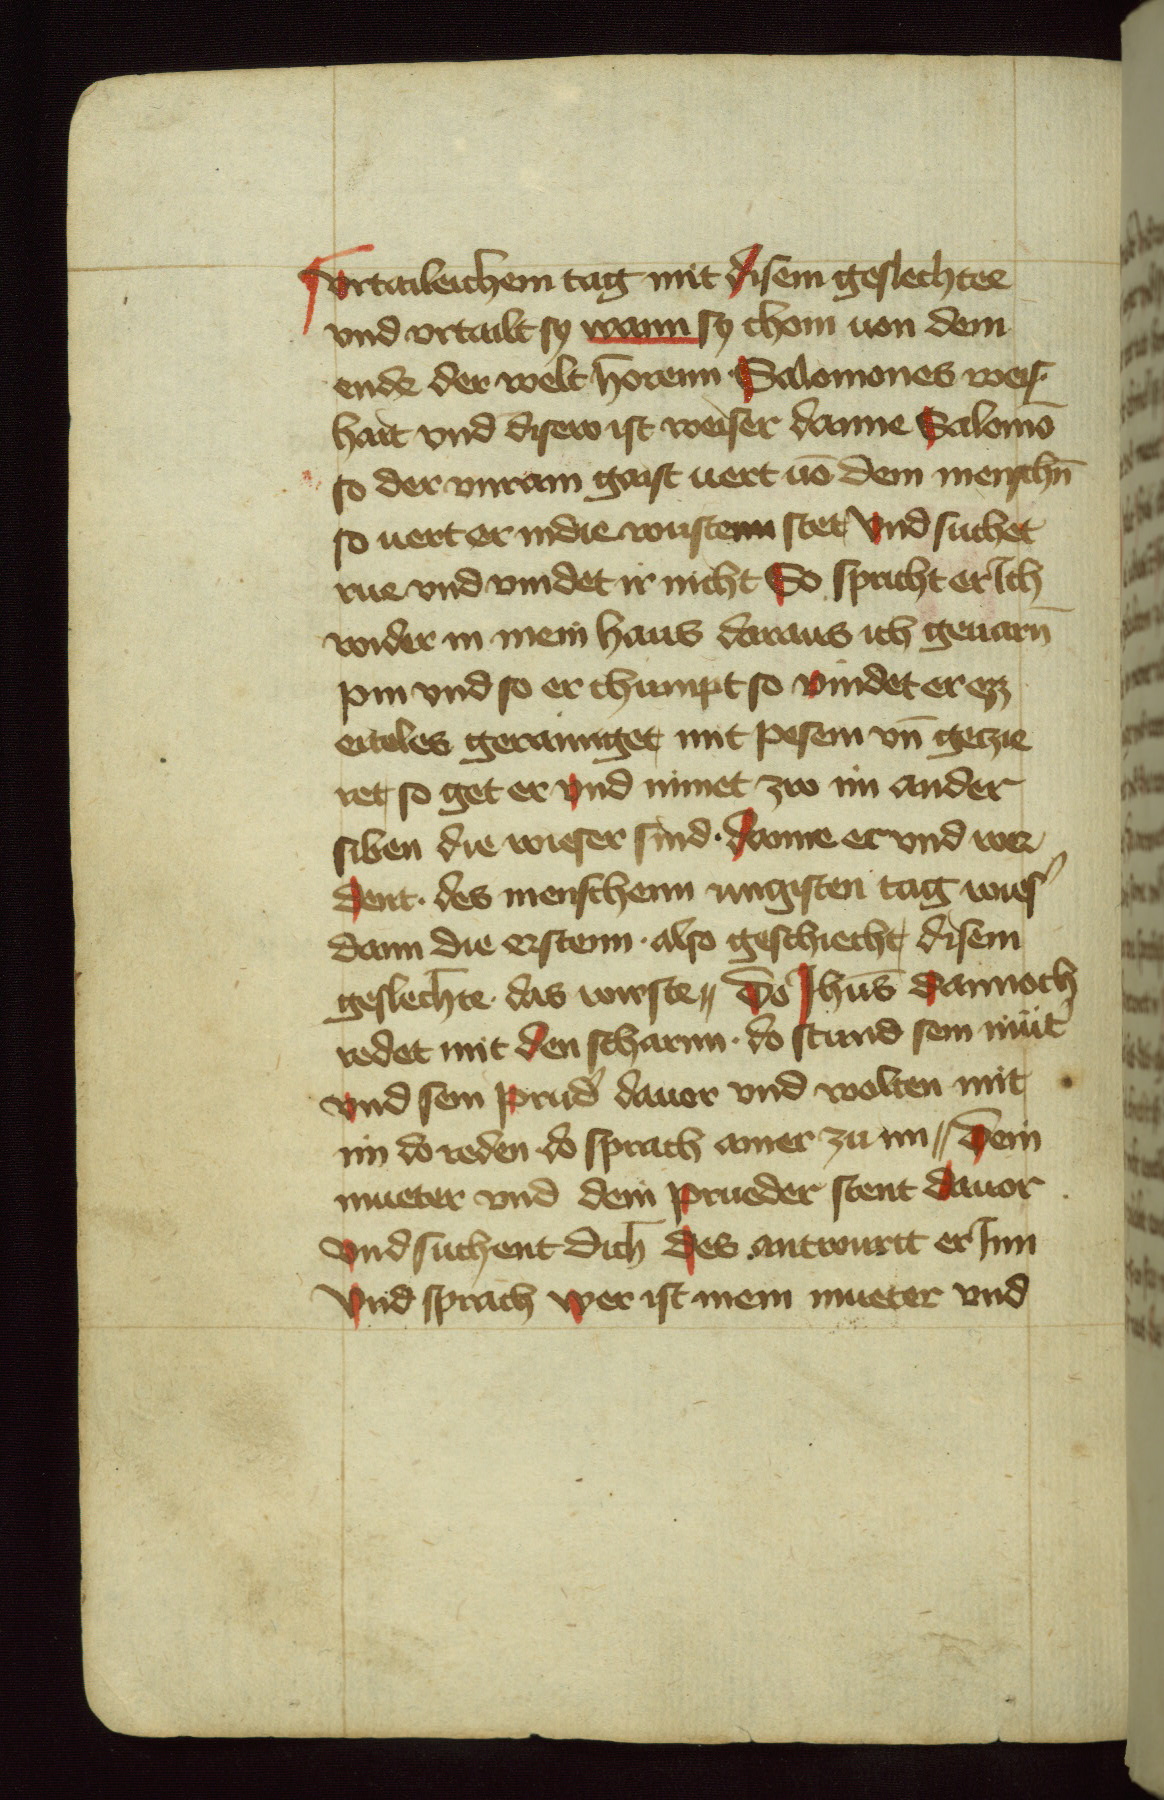 vrtaileichem tag mit disem geslechter
vnd vrtailt sy wann sy chom uon dem
ende der welt horenn Salomones weis
hait vnd disew ist weiser danne Salomō
so der vnrain gaist uert uō dem menschn̄
so uert er indie wustenn stet Vnd suchet
rue vnd vindet ir nicht So spricht er Ich
wider in mein haus daraus ich geuarn̄
pin vnd so er chumpt so vindet er ez
eiteles gerainiget mit pesem vn̄ geczie
ret so get er vnd nimet zw im ander
siben die wieser sind · danne er vnd wer
dent · des menschenn iungisten tag wies'
dann die erstenn · also geschiecht disem
geslechte · das wirste // Do Jhūs dannoch
redet mit den scharnn · do stund sein müt'
vnd sein prud' dauor vnd wolten mit
im do reden do sprach ainer zu im // Dein
mueter vnd dein prueder stent dauor
vnd suchent dich des antwurtt er Inn
Vnd sprach wer ist mein mueter vnd